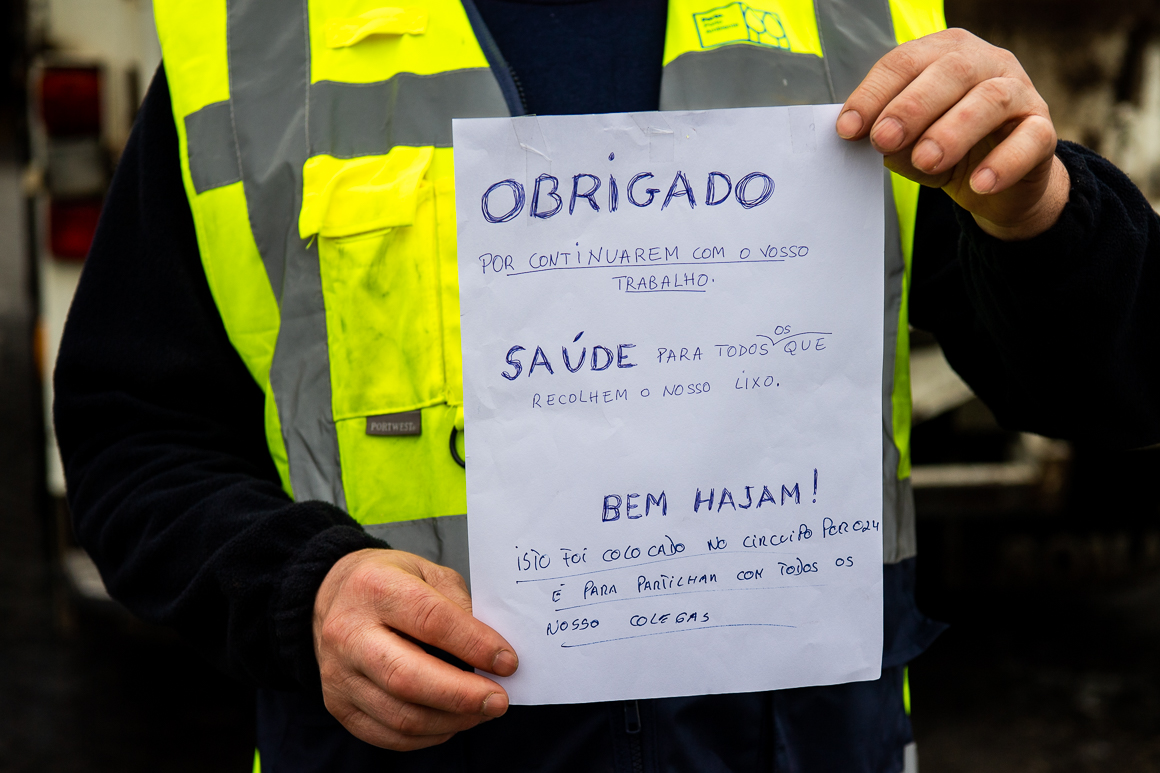 Porto.
OBRIGADO
POR CONTINUAREM COM O VOSSO
TRABALHO.
OS
SAÚDE PARA TODOS QUE
RECOLHEM O NOSSO LIXO.
PORTWEST
BEM HAJAM!
ISTO FOI COLOCADO NO CIRCUITO PORO24
É PARA PARTILHAR COM TODOS OS
NOSSO COLEGAS